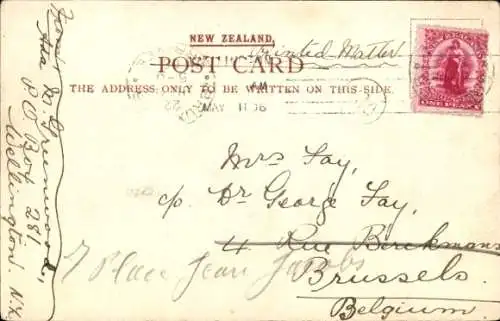 NEW ZEALAND.
POST CARD
Printed Matter
THE ADDRESS ONLY TO BE WRITTEN ON THIS SIDE.
MAY 11 06
ONE PENNY
From
M. Greenwood,
P O Box 281
Wellington. N.Z.
Mrs Fay,
c/o Dr George Fay,
4 Rue Berckmans
7 Place Jean Jacobs
Brussels.
Belgium.